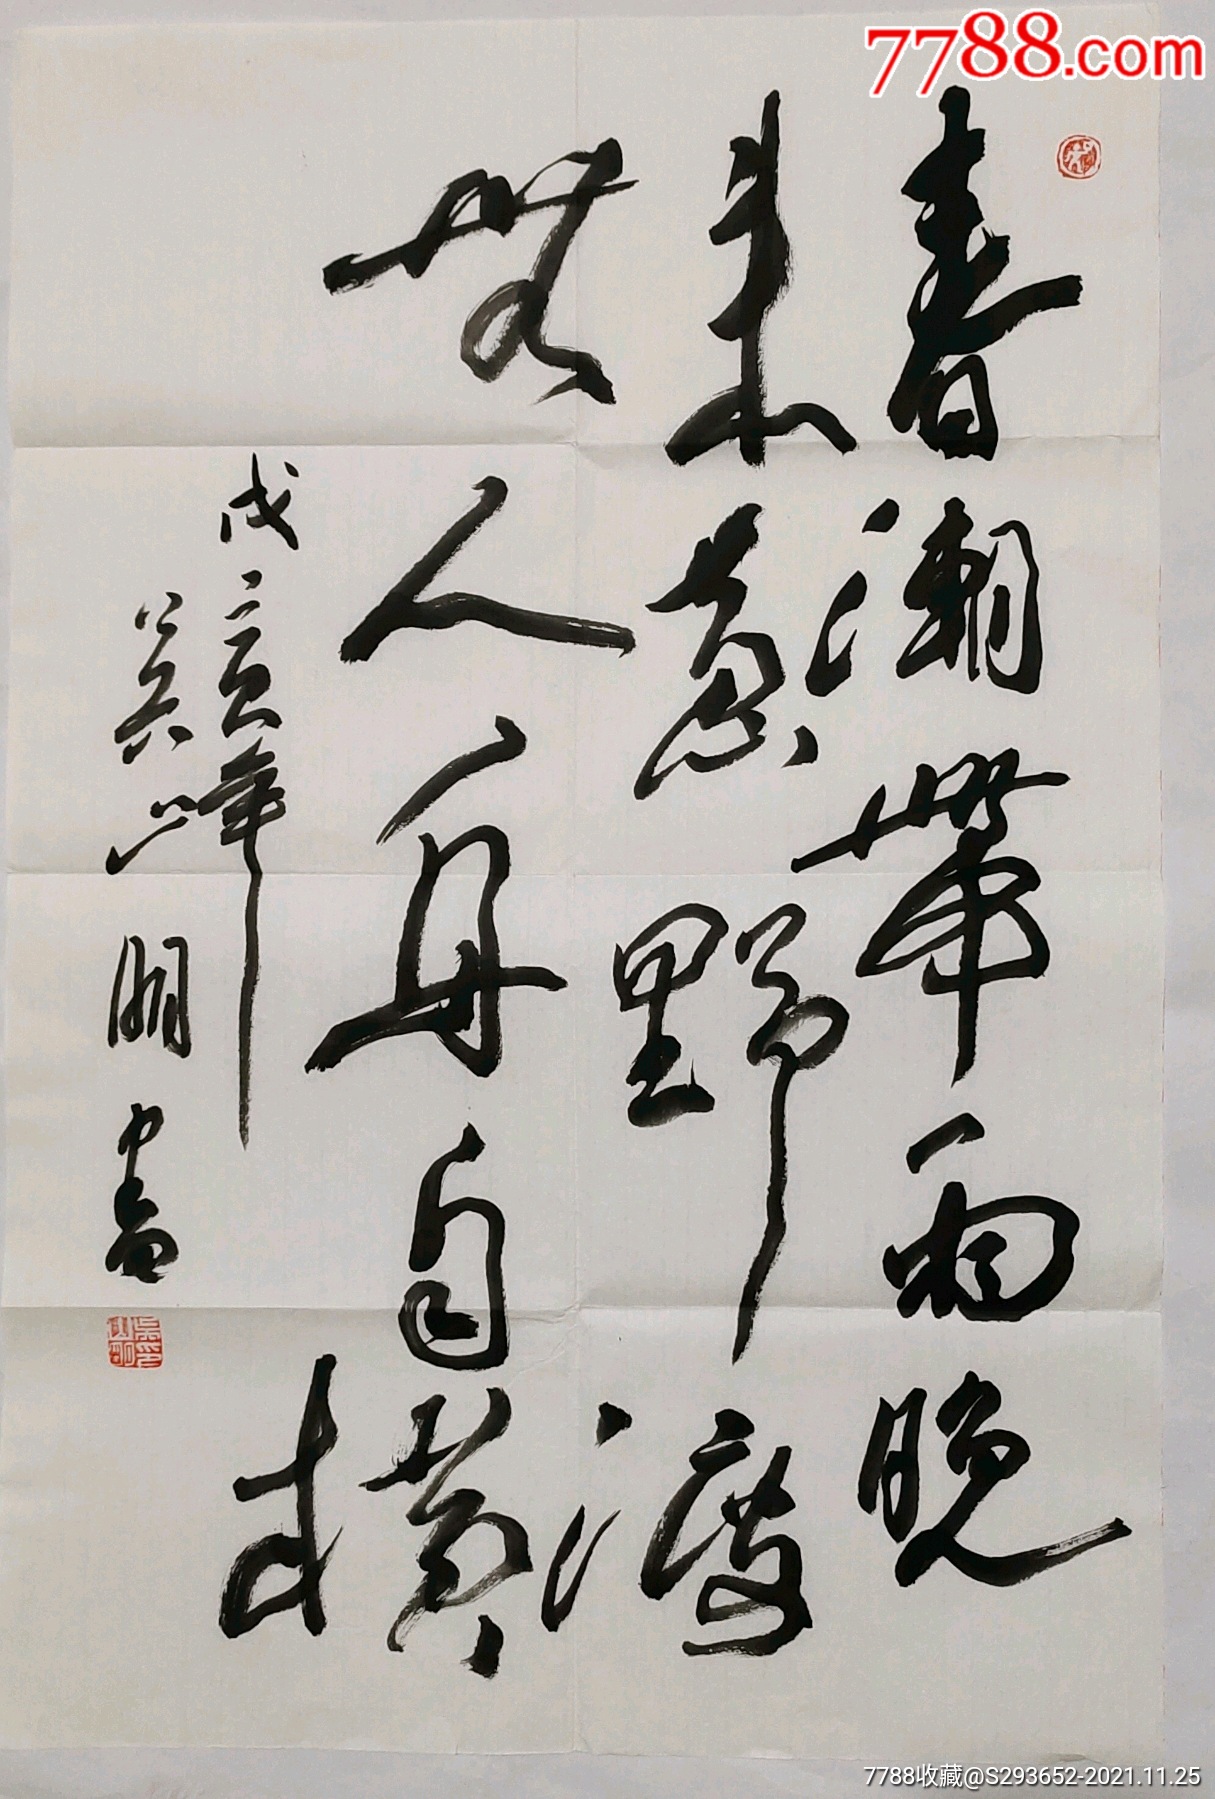 7788.com
春潮帶雨晚
來急野渡
無人舟自橫
戊寅年
吳山明書
7788收藏@S293652-2021.11.25